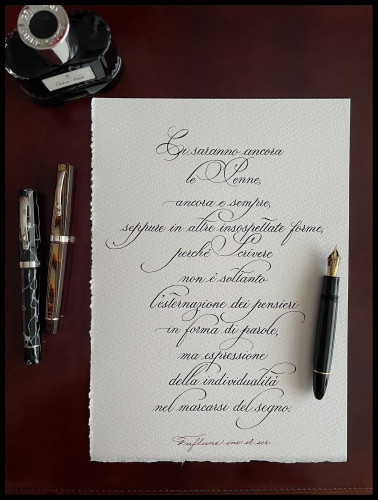 Ci saranno ancora
le Penne,
ancora e sempre,
seppure in altre insospettate forme,
perché Scrivere
non è soltanto
l'esternazione dei pensieri
in forma di parole,
ma espressione
della individualità
nel marcarsi del segno.